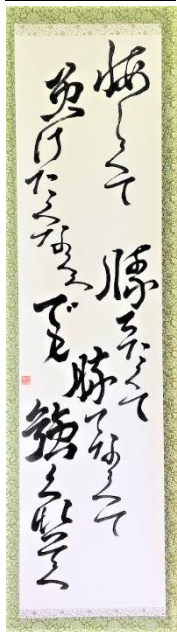 悔しくて
勝ちたくて
勝てなくて
負けたくなくて
でも
強くなって